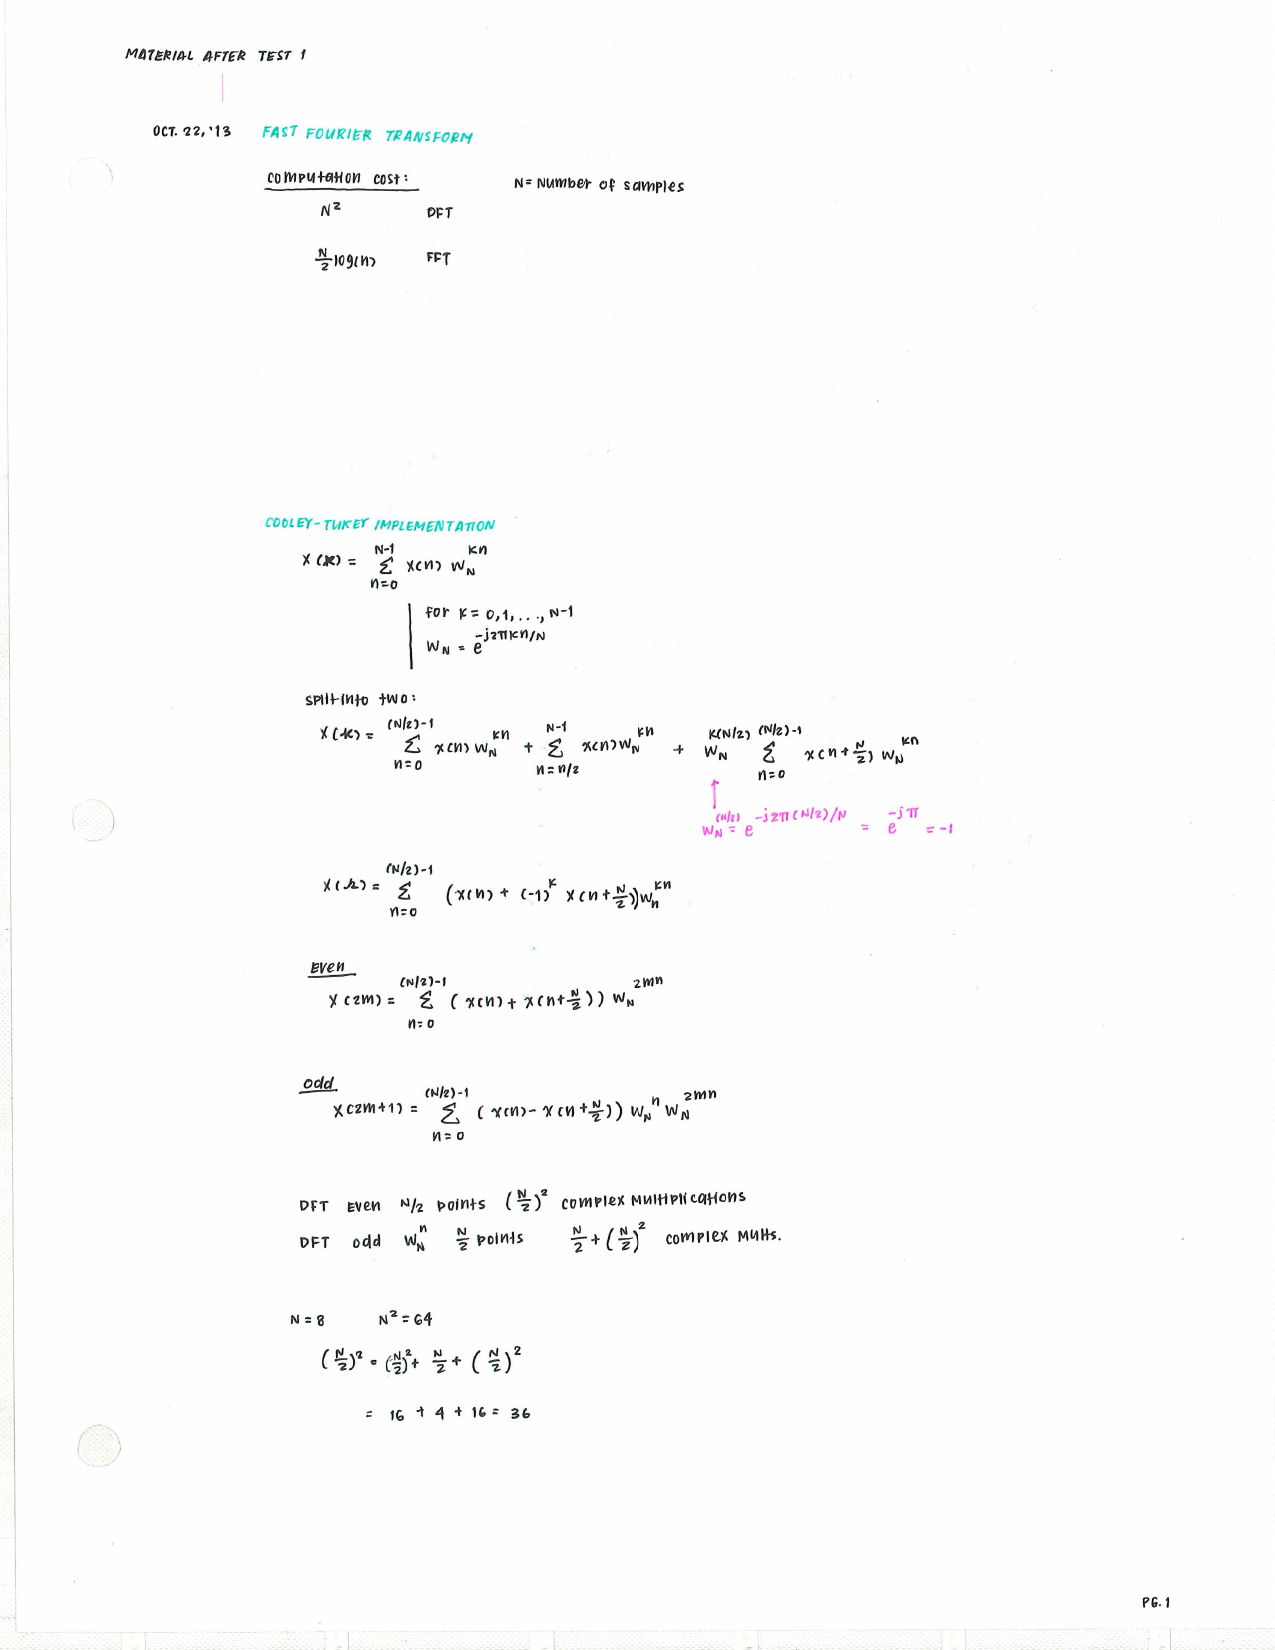 MATERIAL AFTER TEST 1
OCT. 22, '13 FAST FOURIER TRANSFORM
computation cost: N = Number of samples
N² DFT
N/2 log(n) FFT
COOLEY-TUKEY IMPLEMENTATION
X(k) = Σ_{n=0}^{N-1} x(n) W_N^{kn}
for k = 0,1,...,N-1
W_N = e^{-j2πkn/N}
split into two:
X(k) = Σ_{n=0}^{(N/2)-1} x(n) W_N^{kn} + Σ_{n=n/2}^{N-1} x(n) W_N^{kn} + W_N^{k(N/2)} Σ_{n=0}^{(N/2)-1} x(n+N/2) W_N^{kn}
W_N^{(N/2)} = e^{-j2π(N/2)/N} = e^{-jπ} = -1
X(k) = Σ_{n=0}^{(N/2)-1} (x(n) + (-1)^k x(n+N/2)) W_n^{kn}
Even
X(2m) = Σ_{n=0}^{(N/2)-1} (x(n) + x(n+N/2)) W_N^{2mn}
odd
X(2m+1) = Σ_{n=0}^{(N/2)-1} (x(n) - x(n+N/2)) W_N^n W_N^{2mn}
DFT Even N/2 points (N/2)² complex Multiplications
DFT odd W_N^n N/2 points N/2 + (N/2)² complex Mults.
N = 8 N² = 64
(N/2)² = (N/2)² + N/2 + (N/2)²
= 16 + 4 + 16 = 36
PG. 1